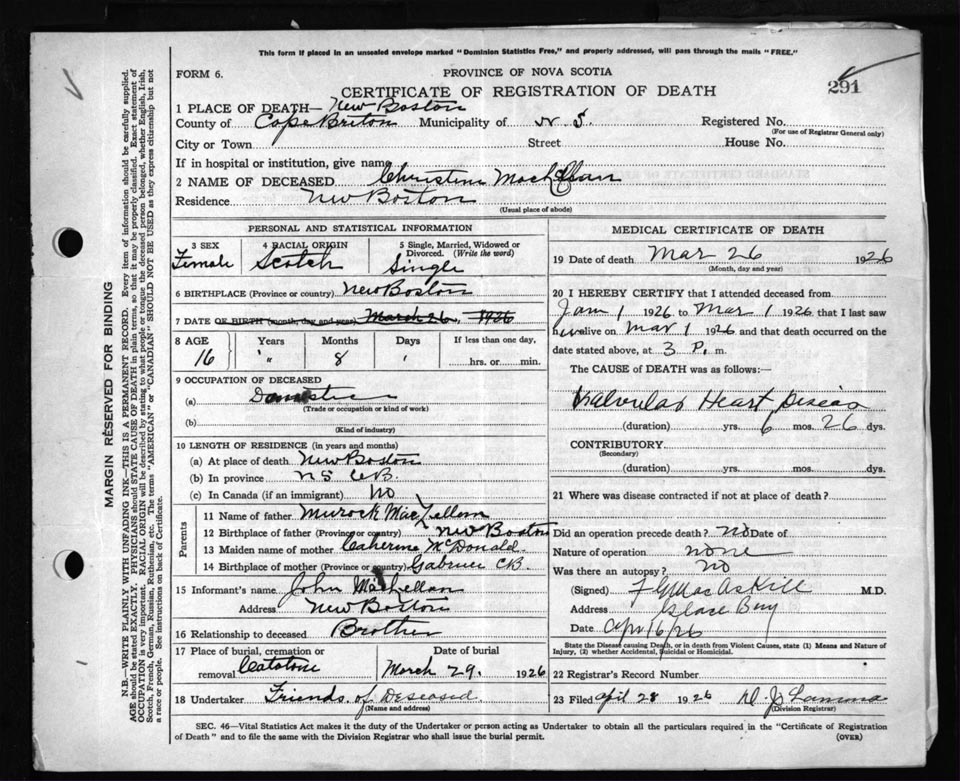 This form if placed in an unsealed envelope marked "Dominion Statistics Free," and properly addressed, will pass through the mails "FREE."
FORM 6.
PROVINCE OF NOVA SCOTIA
CERTIFICATE OF REGISTRATION OF DEATH
291
1 PLACE OF DEATH— New Boston
County of Cape Briton Municipality of N S. Registered No.
(For use of Registrar General only)
City or Town Street House No.
If in hospital or institution, give name
2 NAME OF DECEASED Christine MacLellan
Residence New Boston
(Usual place of abode)
PERSONAL AND STATISTICAL INFORMATION
3 SEX Female
4 RACIAL ORIGIN Scotch
5 Single, Married, Widowed or Divorced. (Write the word) Single
6 BIRTHPLACE (Province or country) New Boston
7 DATE OF BIRTH (month, day and year) March 26, 1926
8 AGE Years Months Days If less than one day,
16 " 8 hrs. or min.
9 OCCUPATION OF DECEASED
(a) Domestic
(Trade or occupation or kind of work)
(b)
(Kind of industry)
10 LENGTH OF RESIDENCE (in years and months)
(a) At place of death New Boston
(b) In province NS CB.
(c) In Canada (if an immigrant) No
Parents
11 Name of father Murock MacLellan
12 Birthplace of father (Province or country) New Boston
13 Maiden name of mother Catherine McDonald
14 Birthplace of mother (Province or country) Gabruee CB.
15 Informant's name John MacLellan
Address New Boston
16 Relationship to deceased Brother
17 Place of burial, cremation or removal Catalone
Date of burial March 29. 1926
18 Undertaker Friends of Deseased
(Name and address)
MEDICAL CERTIFICATE OF DEATH
19 Date of death Mar 26 1926
(Month, day and year)
20 I HEREBY CERTIFY that I attended deceased from
Jan 1 1926 to Mar 1 1926 that I last saw
her alive on Mar 1 1926 and that death occurred on the
date stated above, at 3 P. m.
The CAUSE of DEATH was as follows:—
Valvular Heart Diseas
(duration) yrs. 6 mos. 26 dys.
CONTRIBUTORY
(Secondary)
(duration) yrs. mos. dys.
21 Where was disease contracted if not at place of death?
Did an operation precede death? no Date of
Nature of operation none
Was there an autopsy? no
(Signed) F G MacAskill M.D.
Address Glace Bay
Date Apr 16/26
State the Disease causing Death, or in death from Violent Causes, state (1) Means and Nature of
Injury, (2) whether Accidental, Suicidal or Homicidal.
22 Registrar's Record Number
23 Filed April 28 1926 D. J.
(Division Registrar)
SEC. 46—Vital Statistics Act makes it the duty of the Undertaker or person acting as Undertaker to obtain all the particulars required in the "Certificate of Registration
of Death" and to file the same with the Division Registrar who shall issue the burial permit.
(OVER)
MARGIN RESERVED FOR BINDING
N.B.—WRITE PLAINLY WITH UNFADING INK—THIS IS A PERMANENT RECORD. Every item of information should be carefully supplied.
AGE should be stated EXACTLY. PHYSICIANS should STATE CAUSE OF DEATH in plain terms, so that it may be properly classified. Exact statement of
OCCUPATION is very important. RACIAL ORIGIN will be described by stating to what people or tongue the deceased person belonged, whether English, Irish,
Scotch, French, German, Russian, Ruthenian, etc. The terms "AMERICAN" or "CANADIAN" SHOULD NOT BE USED as they express citizenship but not
a race or people. See instructions on back of Certificate.